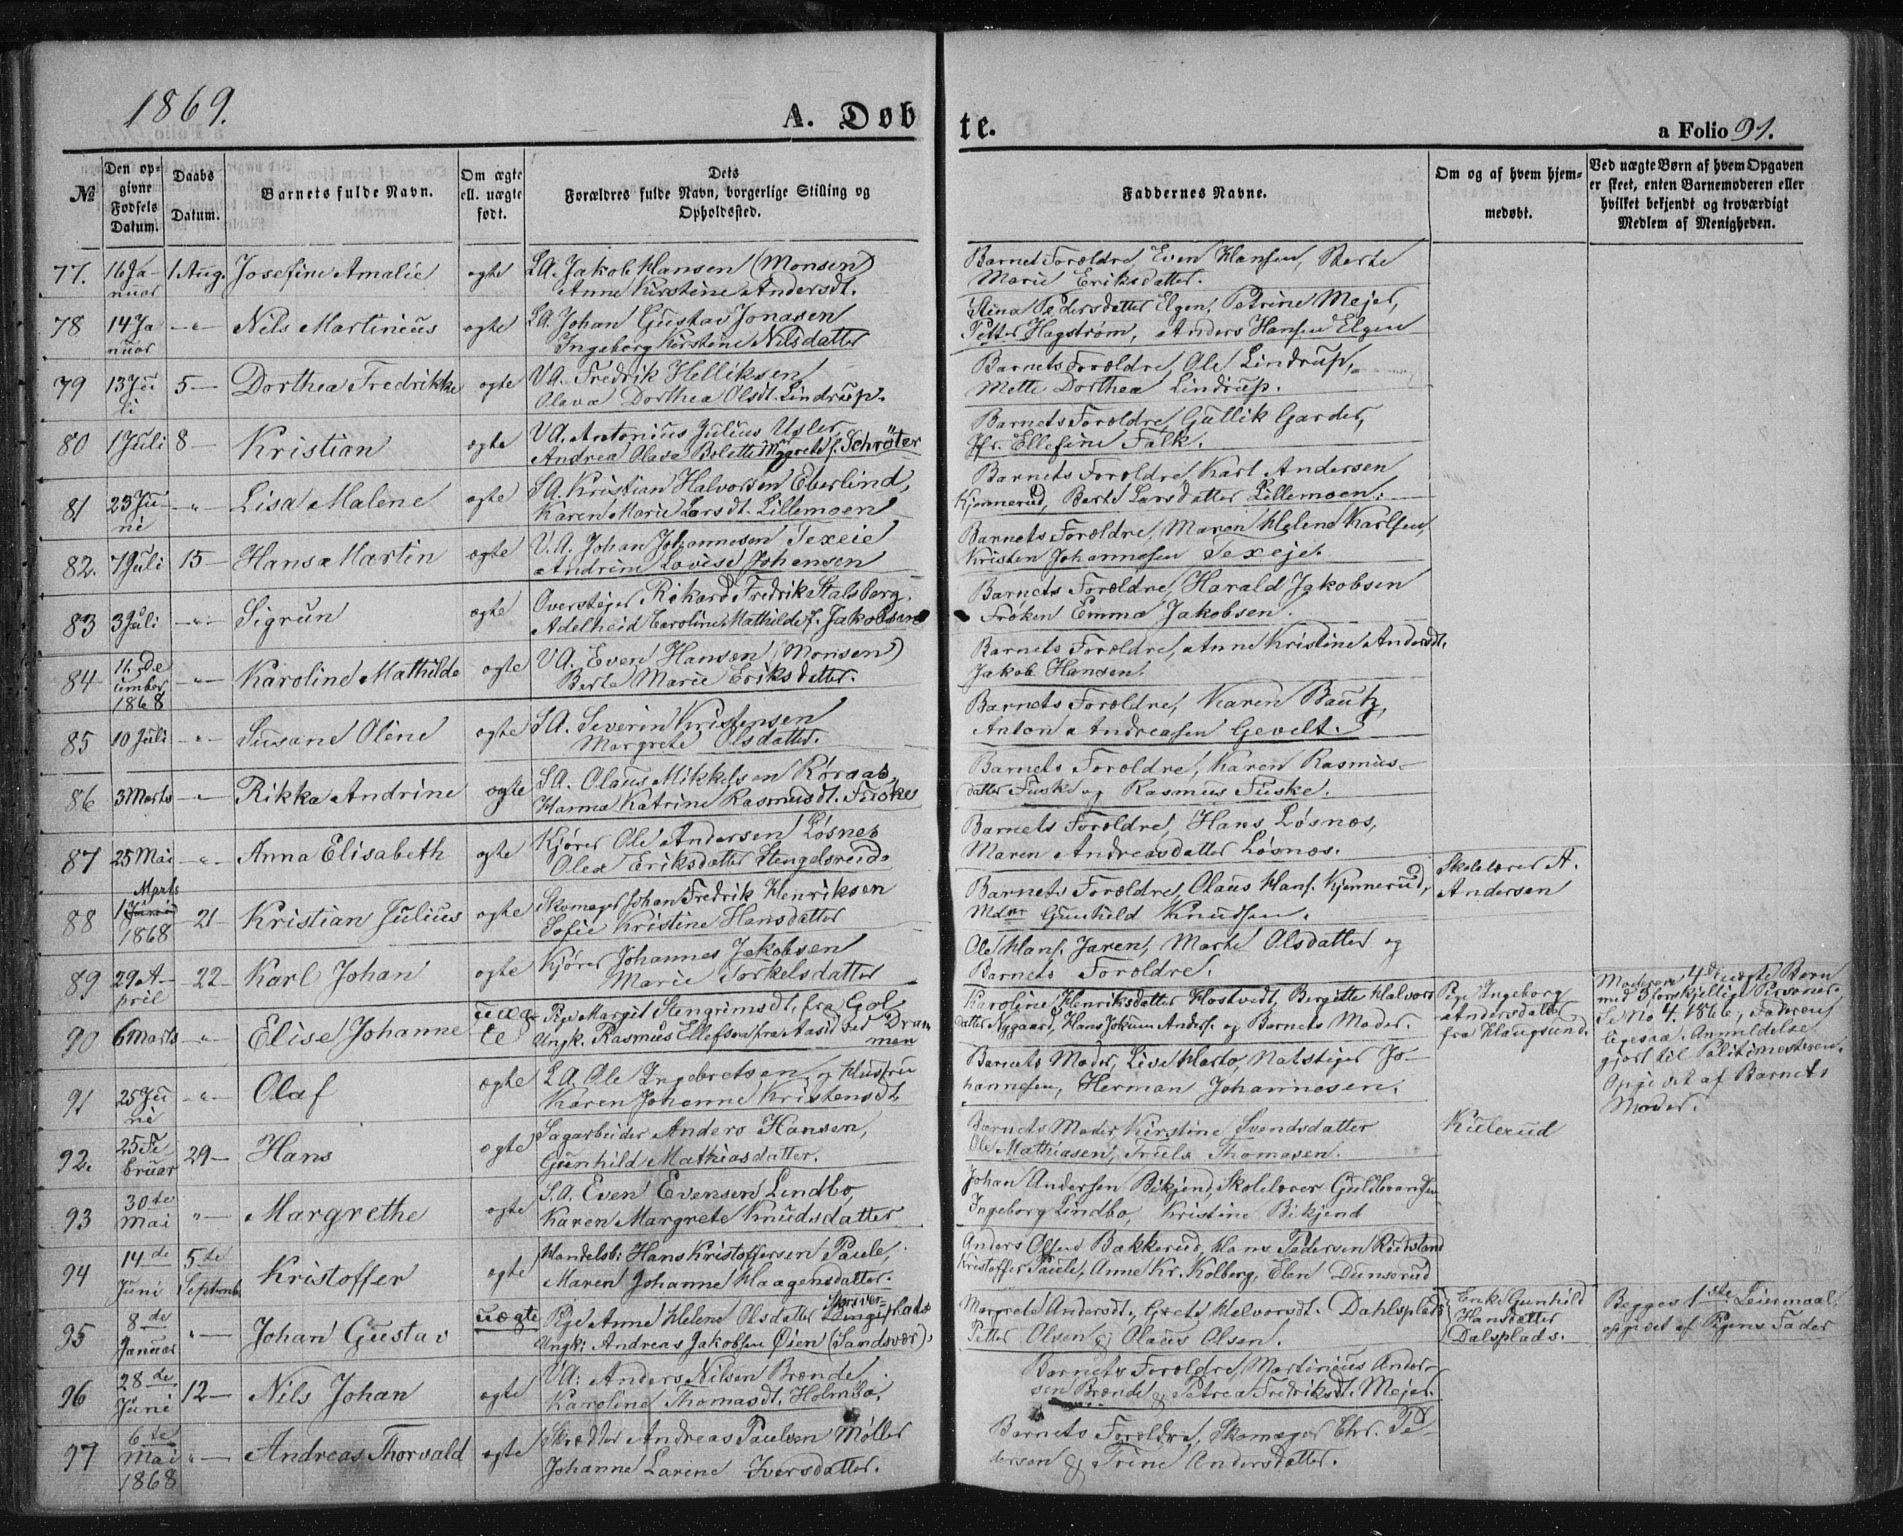 1869.
A. Døbte.
a Folio 91.
№
Den opgivne Fødsels Datum.
Daabs Datum.
Barnets fulde Navn.
Om ægte ell. uægte født.
Dets Forældres fulde Navn, borgerlige Stilling og Opholdssted.
Faddernes Navne.
Om og af hvem hjemmedøbt.
Ved uægte Børn af hvem Opgaven er skeet, enten Barnemoderen eller hvilket bekjendt og troværdigt Medlem af Menigheden.
77. 16 Januar 1 Aug. Josefine Amalie ægte S.A. Jakob Hansen (Monsen)
Anne Kirstine Andersdt.
Barnets Forældre, Even Hansen, Berte
Marie Eriksdatter.
78 14 Januar -"- Nils Martinius ægte S.A. Johan Gustav Jonasen
Ingeborg Kirstine Nilsdatter
Stina Pedersdatter Elgen, Petrine Mejer,
Petter Hagstrøm, Anders Hansen Elgen
79 13 Juli 5 - Dorthea Fredrikke ægte V.A. Fredrik Helliksen
Olava Dorthea Olsdt. Lindrup.
Barnets Forældre, Ole Lindrup,
Mette Dorthea Lindrup.
80 1 Juli 8 - Kristian ægte V.A. Antonius Julius Usler
Andrea Olava Bolette Margrete f. Schrøter
Barnets Forældre, Gullik Garder,
Fr. Ellefine Falk.
81 23 Juni -"- Lisa Malene ægte S.A. Kristian Halvorsen Eberlind,
Karen Marie Larsdt. Lillemoen
Barnets Forældre, Karl Andersen
Kjennerud, Berte Larsdatter Lillemoen.
82. 7 Juli 15 - Hans Martin ægte V.A. Johan Johannesen Texeie
Andrine Lovise Johansen
Barnets Forældre, Maren Helene Karlsen,
Kristen Johannesen Texeje.
83 3 Juli -"- Sigrun ægte Overstiger Rikard Fredrik Stalsberg.
Adelheid Caroline Mathilde f. Jakobsen
Barnets Forældre, Harald Jakobsen
Frøken Emma Jakobsen.
84 11 December 1868 -"- Karoline Mathilde ægte V.A. Even Hansen (Monsen)
Berte Marie Eriksdatter.
Barnets Forældre, Anne Kristine Andersdt.
Jakob Hansen.
85 10 Juli -"- Susane Oline ægte S.A. Severin Kristensen
Margrete Olsdatter.
Barnets Forældre, Karen Bautz,
Anton Andreasen Gevelt.
86 3 Marts -"- Rikka Andrine ægte S.A. Olaus Mikkelsen Køraas
Hanna Katrine Rasmusdt. Fuske
Barnets Forældre, Karen Rasmusdatter Fusk og Rasmus Fuske.
87 25 Mai -"- Anna Elisabeth ægte Kjører Ole Andersen Løsnes
Olea Eriksdatter Stengelsrud
Barnets Forældre, Hans Løsnes,
Maren Andreasdatter Løsnæs.
88 1 Marts 1868 21 - Kristian Julius ægte Skomager Johan Fredrik Henriksen
Sofie Kristine Hansdatter
Barnets Forældre, Olaus Hans. Kjennerud,
Mdm Gunhild Knudsen.
Skolelærer A.
Andersen
89 29 April 22 - Karl Johan ægte Kjører Johannes Jakobsen
Marie Torkelsdatter
Ole Hans. Jaren, Marte Olsdatter og
Barnets Forældre.
90 6 Marts -"- Elise Johanne uægte Pige Margit Stengrimsdt. fra Gol
Ungk. Rasmus Ellefsen fra Aasid ved Drammen
Karoline Henriksdatter Hostvedt, Bergitte Halvorsdatter Aggaart, Hans Jokum Anders. og Barnets Moder.
Pige Ingeborg
Andersdatter
fra Haugsund.
Moderens 4de uægte Barn
med 3 forskjellige Personer.
Se No 4. 1866, Faderen
ligesaa. Anmeldelse
gjort til Politimesteren.
Opgivet af Barnets
Moder.
91 25 Juni -"- Olaf ægte S.A. Ole Ingebretsen og Hustru
Karen Johanne Kristensdt.
Barnets Moder, Live Marto, Natstiger Johannesen, Herman Johannesen.
92. 25 Februar 29 - Hans ægte Sagarbeider Anders Hansen,
Gunhild Mathiasdatter.
Barnets Moder, Kirstine Svendsdatter
Ole Mathiasen, Truls Thomasen.
Kulerud
93 30te Mai "- Margrethe ægte S.A. Even Evensen Lindbo,
Karen Margrete Knudsdatter
Johan Andersen Bikjend, Skolelærer Guldbrandsen
Ingeborg Lindbo, Kristine Bikjend
94 14de Juni 5te Septemb. Kristoffer ægte Handelsb: Hans Kristoffersen Paule,
Maren Johanne Haagensdatter.
Anders Olsen Bakkerud, Hans Pedersen Rudsland
Kristoffer Paule, Anne Kr. Kolberg, Elen Dunserud
95 8de Januar "- Johan Gustav uægte Pige Anne Helene Olsdatter
Ungk: Andreas Jakobsen Øien (Sandsvær).
Margrete Andersdt., Grete Halvorsdt. Dahlsplads
Petter Olsen og Olaus Olsen.
Enke Gunhild
Hansdatter
Dalsplads.
Begges 1ste Leiermaal
opgivet af Pigens Fader
96 28de Juni 12 - Nils Johan ægte V.A: Anders Nilsen Brønde,
Karoline Thomasdt. Holmbo.
Barnets Forældre, Martinius Andersen Brønde og Petrea Fredriksdt. Mejer.
97 6te Mai 1868 "- Andreas Thorvald ægte Skrædder Andreas Paulsen Møller
Johanne Larene Iversdatter.
Barnets Forældre, Skomager Chr. Pedersen og Trine Andersdatter.